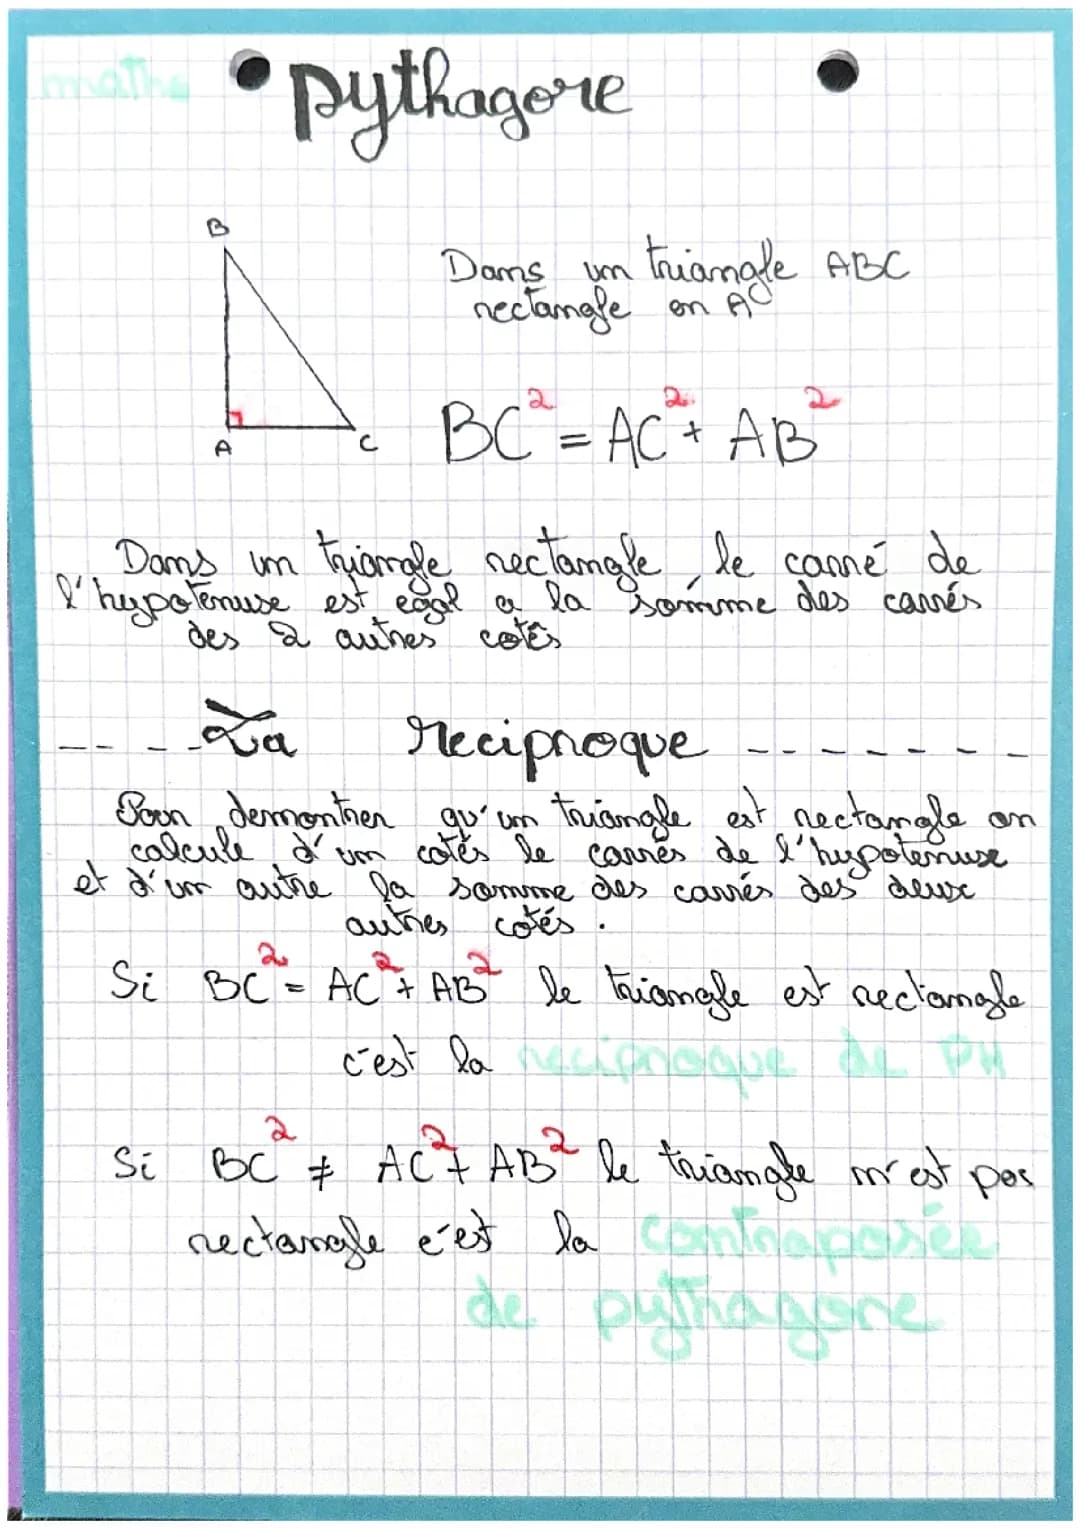 maths
pythagore
B
A
C
Dans un triangle ABC
rectangle en A
BC² = AC² + AB²
Dans un triangle rectangle, le carré de
l'hypotenuse est egal a la somme des carrés
des 2 autres cotés
La reciproque
Pour demontrer qu'un triangle est rectangle on
calcule d'un cotés le carrés de l'hypotenuse
et d'un autre la somme des carrés des deux
autres cotés.
Si BC² = AC² + AB² le triangle est rectangle
c'est la reciproque de PH
Si BC² ≠ AC² + AB² le triangle n'est pas
rectangle c'est la contraposée
de pythagore